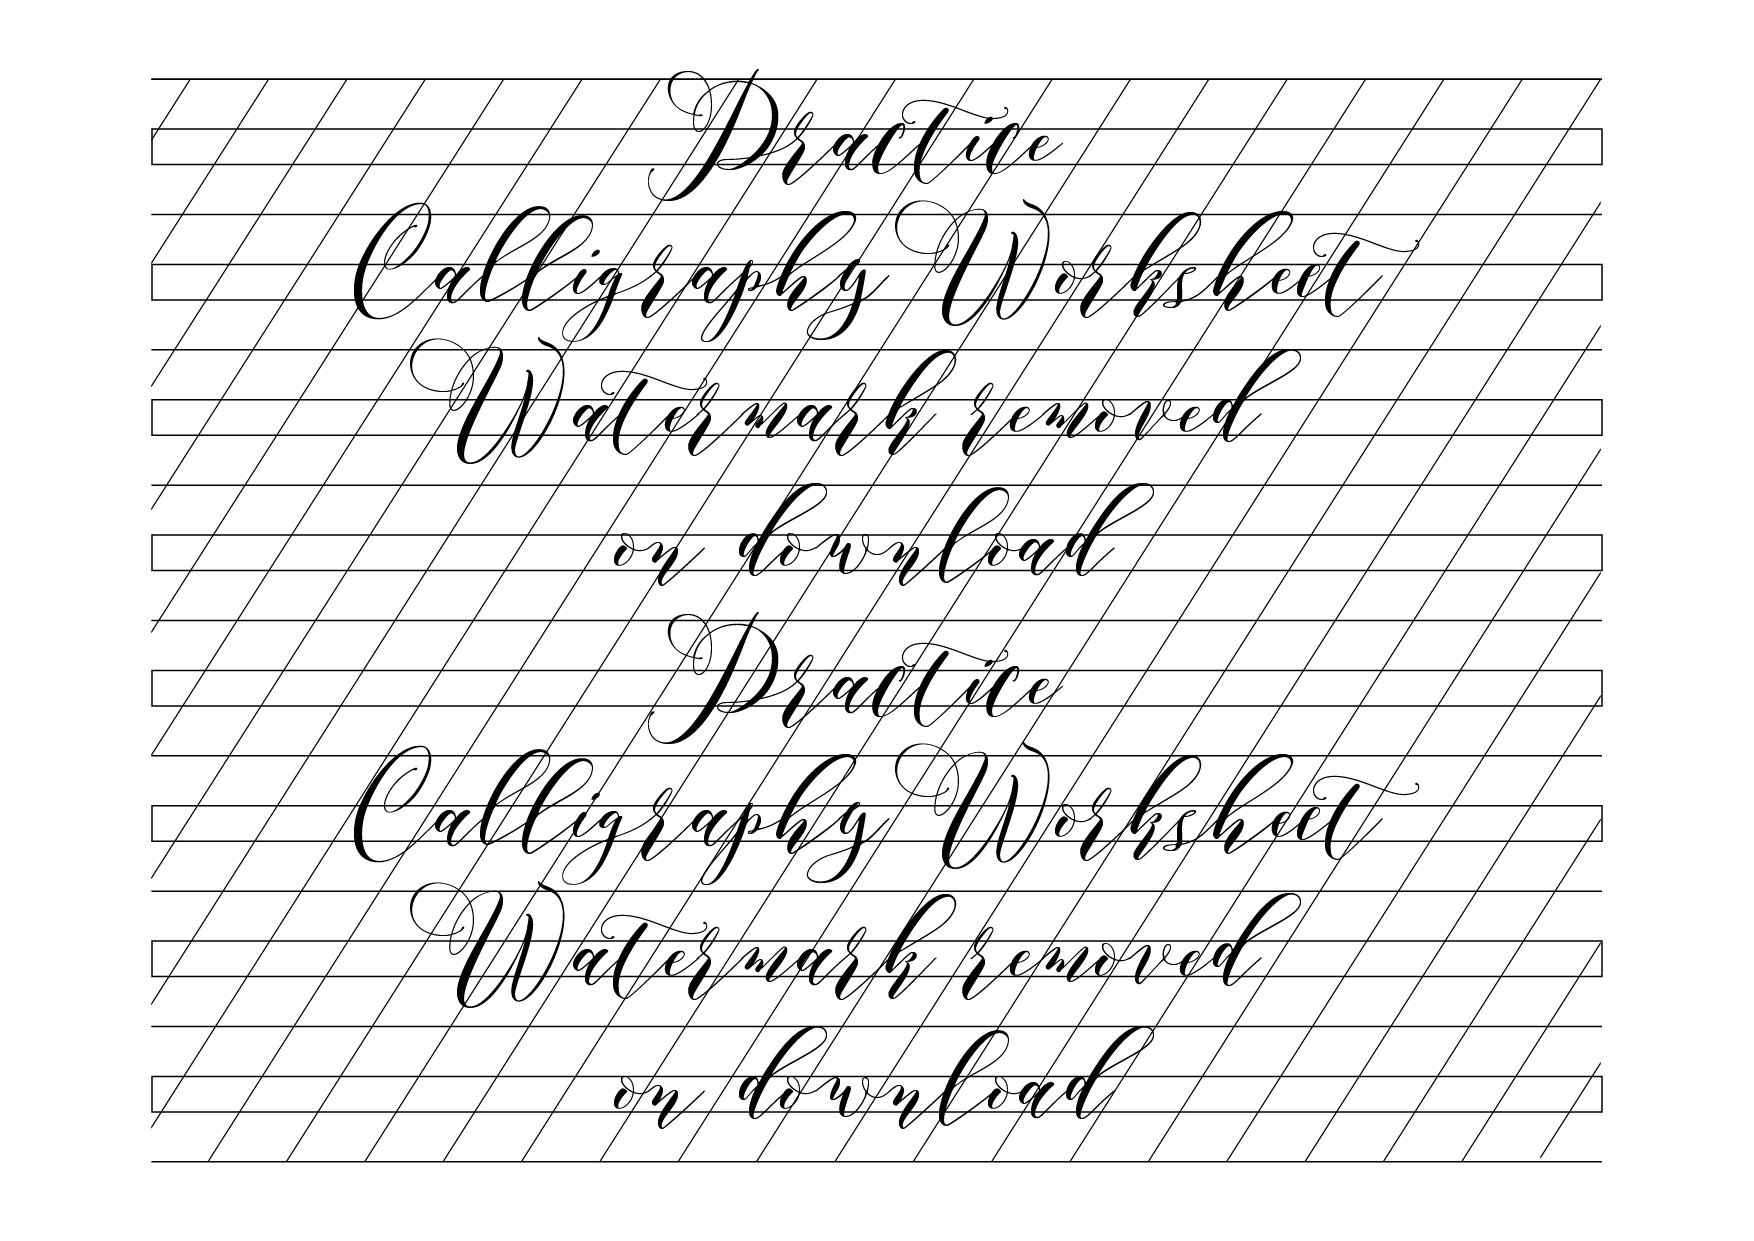 Practice
Calligraphy Worksheet
Watermark removed
on download
Practice
Calligraphy Worksheet
Watermark removed
on download